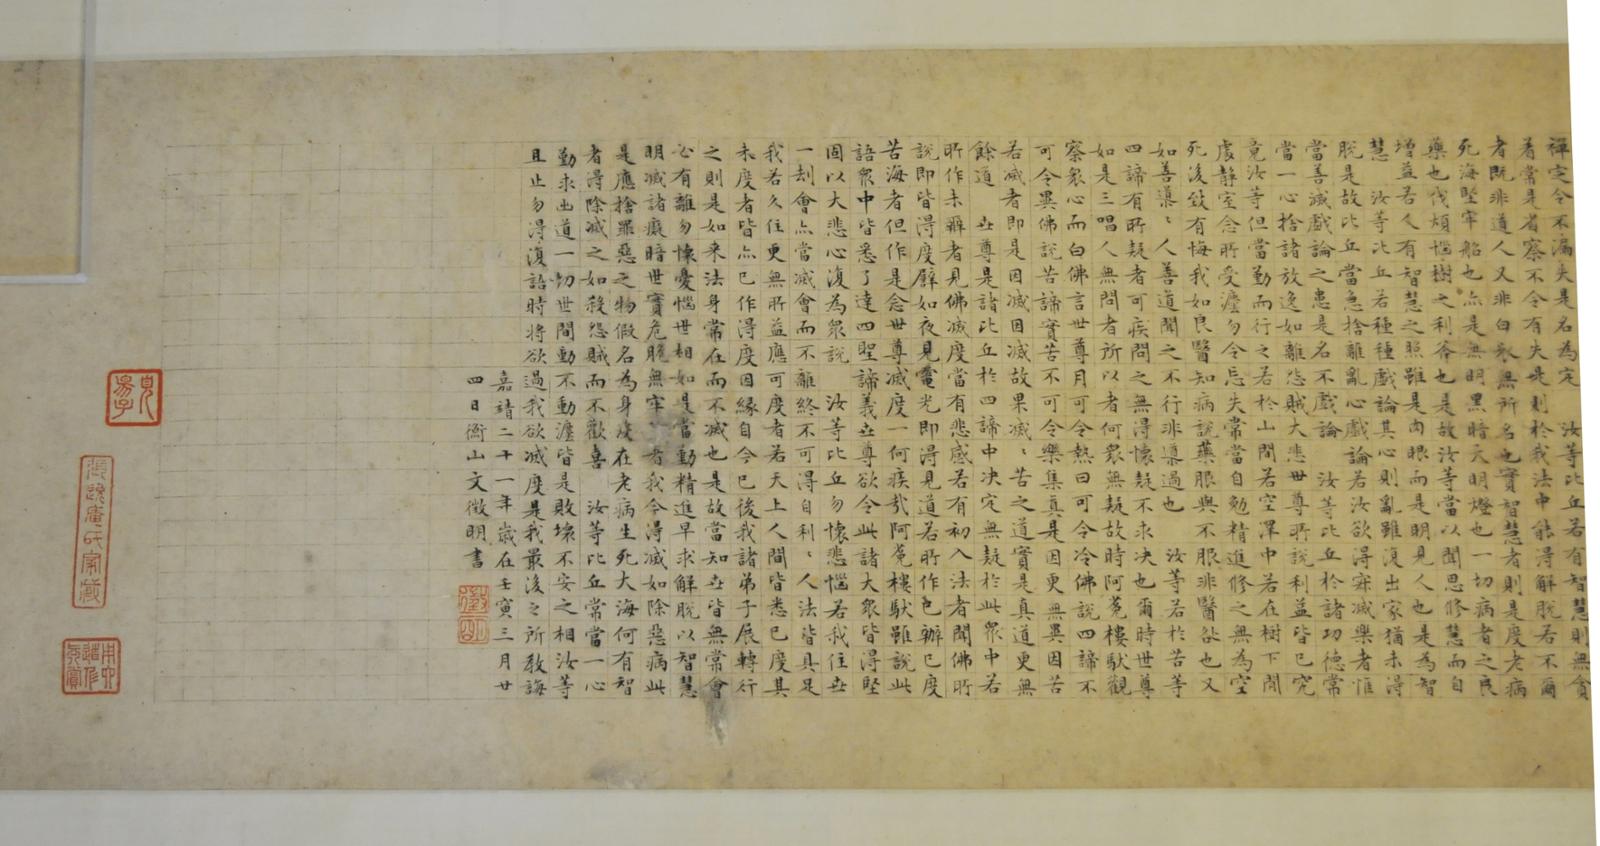 禪定令不漏失是名為定　汝等比丘若有智慧則無貪
著常是省察不令有失是則於我法中能得解脫若不爾
者既非道人又非白衣無所名也實智慧者則是度老病
死海堅牢船也亦是無明黑暗大明燈也一切病者之良
藥也伐煩惱樹之利斧也是故汝等當以聞思修慧而自
增益若人有智慧之照雖是肉眼而是明見人也是為智
慧　汝等比丘若種種戲論其心則亂雖復出家猶未得
脫是故比丘當急捨離亂心戲論若汝欲得寂滅樂者惟
當善滅戲論之患是名不戲論　汝等比丘於諸功德常
當一心捨諸放逸如離怨賊大悲世尊所說利益皆已究
竟汝等但當勤而行之若於山間若空澤中若在樹下閒
處靜室念所受灋勿令忘失常當自勉精進修之無為空
死後致有悔我如良醫知病說藥服與不服非醫咎也又
如善導〻人善道聞之不行非導過也　汝等若於苦等
四諦有所疑者可疾問之無得懷疑不求决也爾時世尊
如是三唱人無問者所以者何眾無疑故時阿㝹樓馱觀
察眾心而白佛言世尊月可令熱日可令冷佛說四諦不
可令異佛說苦諦實苦不可令樂集真是因更無異因苦
若滅者即是因滅因滅故果滅〻苦之道實是真道更無
餘道　世尊是諸比丘於四諦中决定無疑於此眾中若
所作未辦者見佛滅度當有悲感若有初入法者聞佛所
說即皆得度譬如夜見電光即得見道若所作已辦已度
苦海者但作是念世尊滅度一何疾哉阿㝹樓馱雖說此
語眾中皆悉了達四聖諦義世尊欲令此諸大眾皆得堅
固以大悲心復為眾說　汝等比丘勿懷悲惱若我住世
一刦會亦當滅會而不離終不可得自利〻人法皆具足
我若久住更無所益應可度者若天上人間皆悉已度其
未度者皆亦已作得度因緣自今已後我諸弟子展轉行
之則是如来法身常在而不滅也是故當知世皆無常會
必有離勿懷憂惱世相如是當勤精進早求解脫以智慧
明滅諸癡暗世實危脆無牢者我今得滅如除惡病此
是應捨罪惡之物假名為身沒在老病生死大海何有智
者得除滅之如殺怨賊而不歡喜　汝等比丘常當一心
勤求出道一切世間動不動灋皆是敗壞不安之相汝等
且止勿得復語時將欲過我欲滅度是我最後之所教誨
嘉靖二十一年歲在壬寅三月廿
四日衡山文徵明書
徵明
張
盦氏家藏